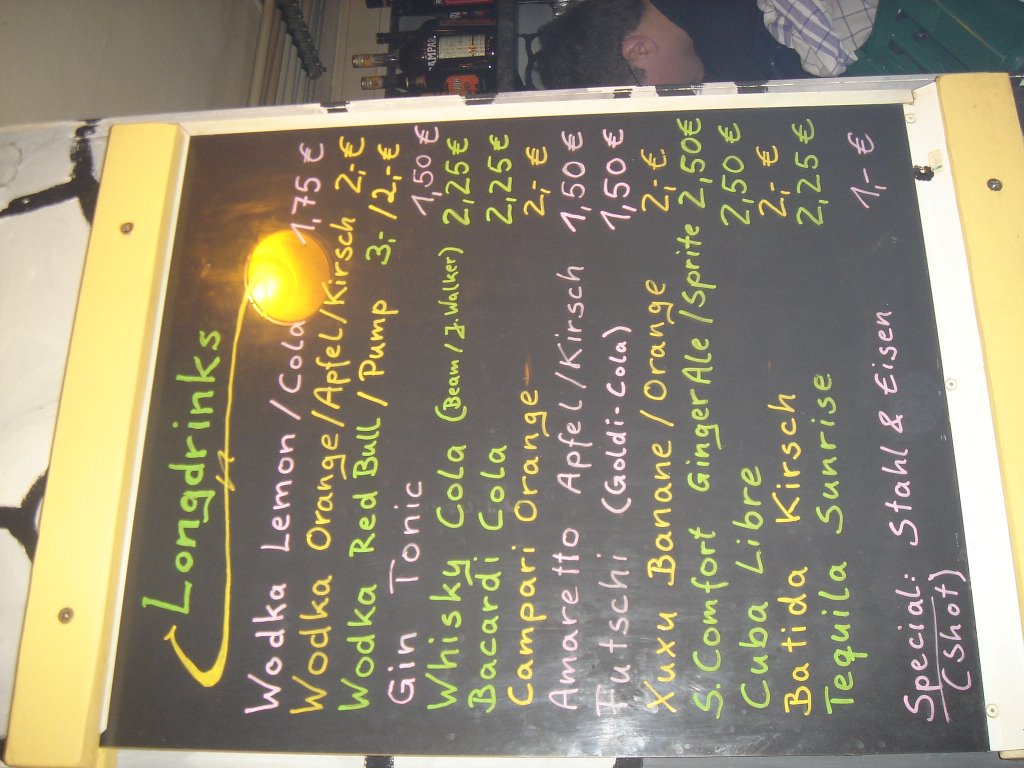 Longdrinks
Wodka Lemon/Cola 1,75 €
Wodka Orange/Apfel/Kirsch 2,- €
Wodka Red Bull/Pump 3,- /2,- €
Gin Tonic 1,50 €
Whisky Cola (Beam/J. Walker) 2,25 €
Bacardi Cola 2,25 €
Campari Orange 2,- €
Amaretto Apfel/Kirsch 1,50 €
Futschi (Goldi-Cola) 1,50 €
Xuxu Banane/Orange 2,- €
S. Comfort Ginger Ale/Sprite 2,50 €
Cuba Libre 2,50 €
Batida Kirsch 2,- €
Tequila Sunrise 2,25 €
Special: Stahl & Eisen 1,- €
(Shot)